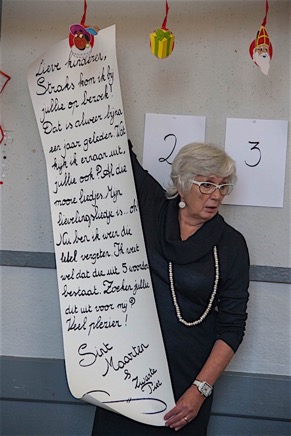 Lieve kinderen,
Straks kom ik bij
jullie op bezoek!
Dat is alweer bijna
een jaar geleden. Wat
kijk ik ernaar uit,
jullie ook? Al die
mooie liedjes. Mijn
lievelingsliedje is...oh
Nu ben ik weer die
titel vergeten. Ik weet
wel dat die uit 5 woorden
bestaat. Zoeken jullie
dit uit voor mij?
Veel plezier!
Sint
Maarten
&
Zwarte
Piet
2
3